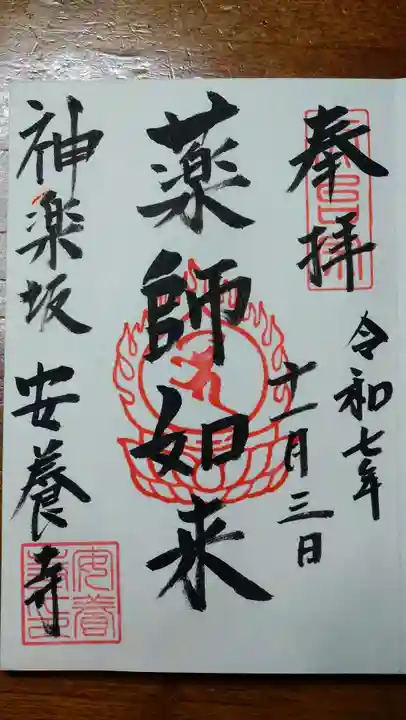 奉拝
令和七年
十一月三日
薬師如来
神楽坂 安養寺